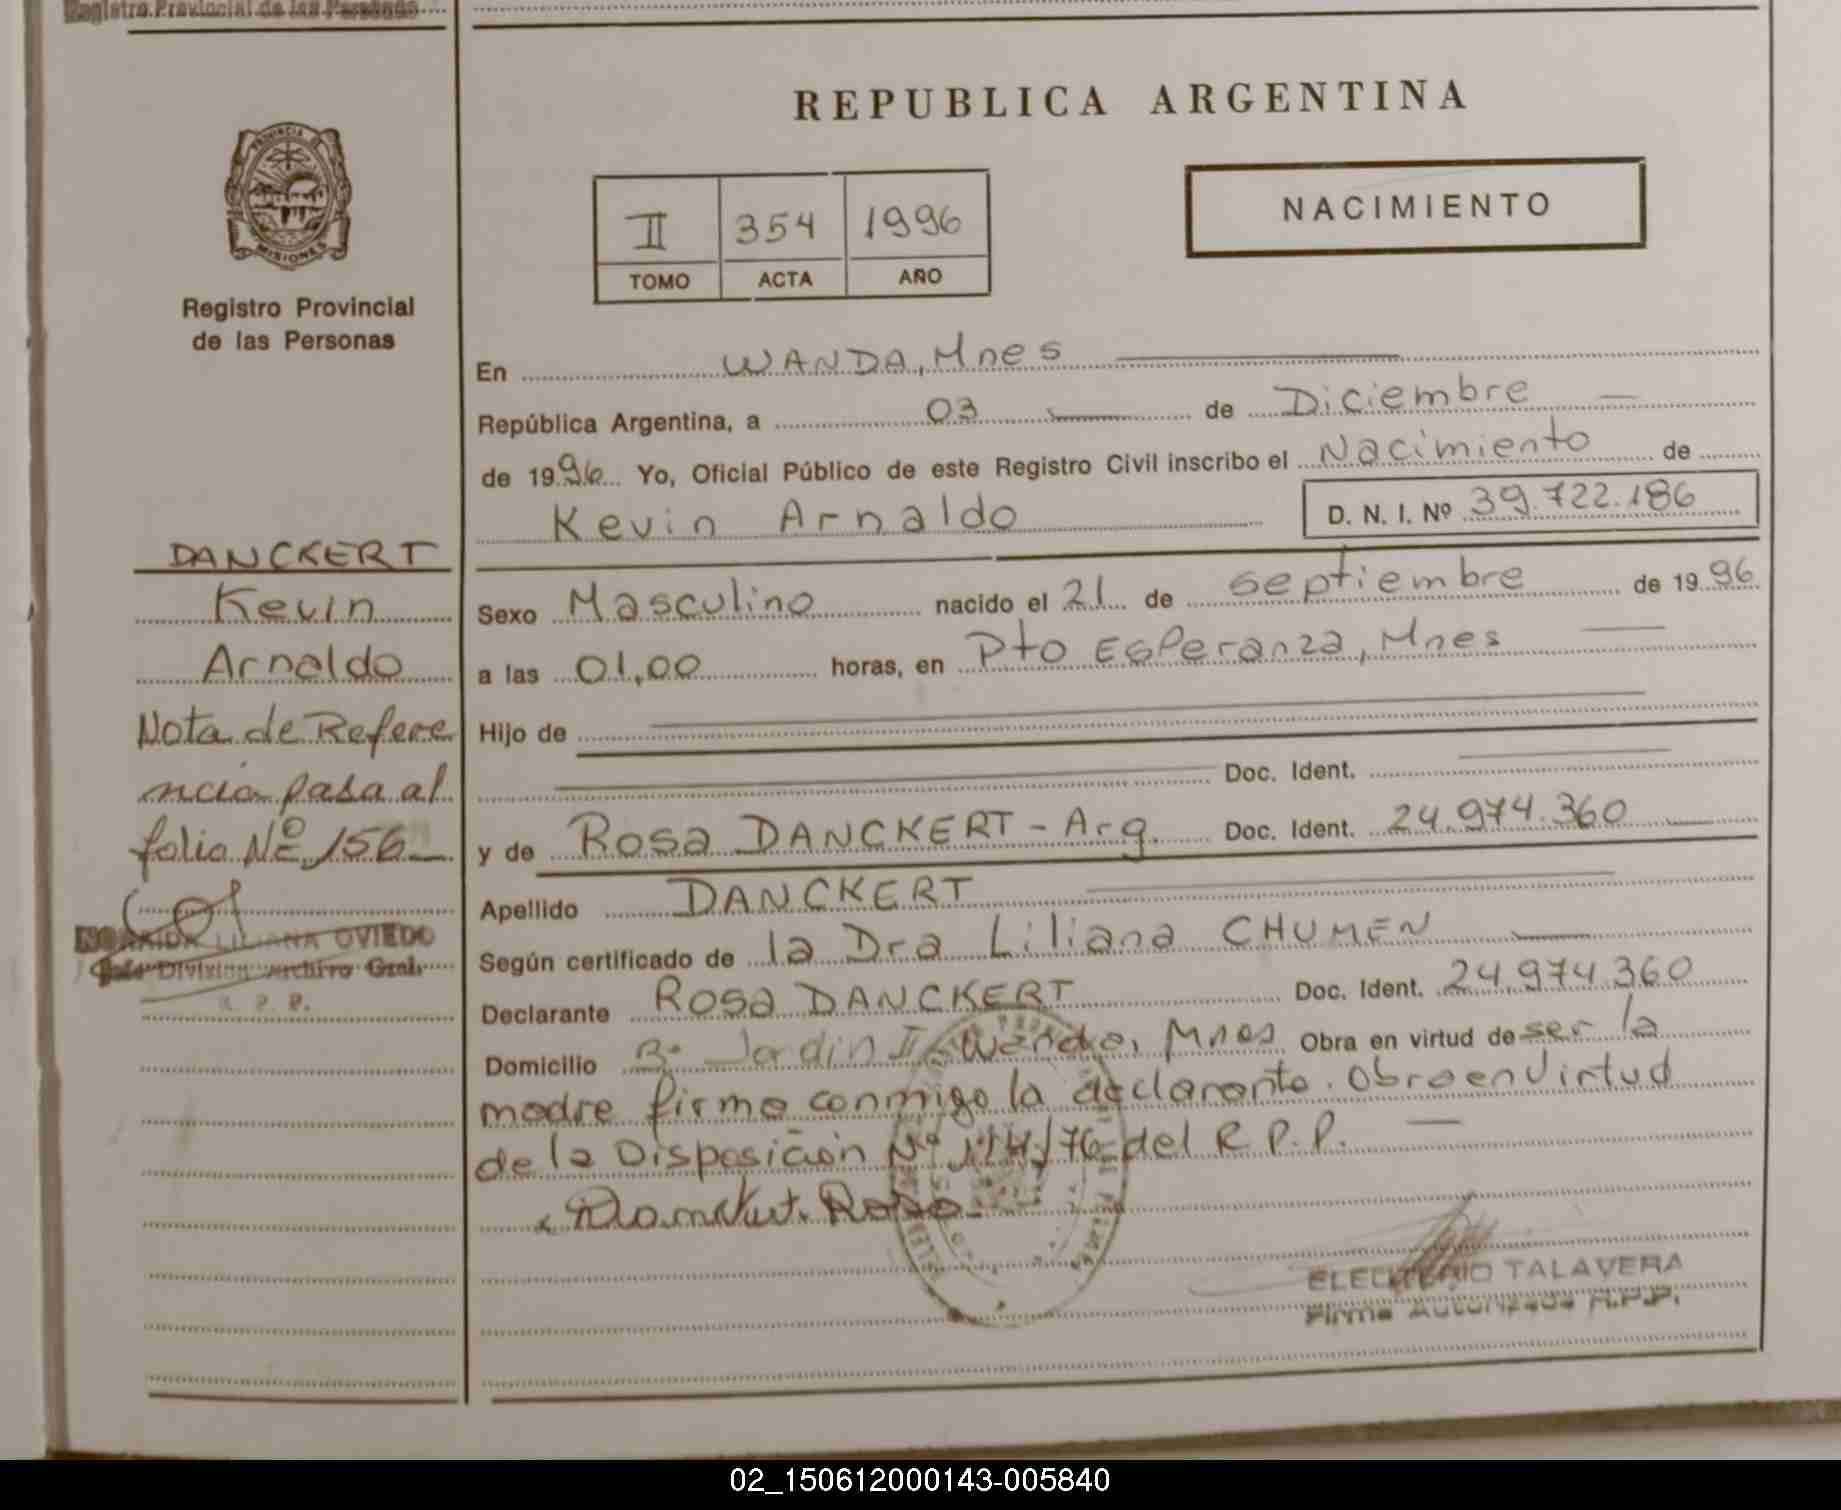 Registro Provincial de las Personas
REPUBLICA ARGENTINA
PROVINCIA DE
MISIONES
Registro Provincial
de las Personas
II 354 1996
TOMO ACTA AÑO
NACIMIENTO
En WANDA, Mnes
República Argentina, a 03 de Diciembre
de 1996 Yo, Oficial Público de este Registro Civil inscribo el Nacimiento de
Kevin Arnaldo D. N. I. Nº 39.722.186
DANCKERT
Kevin
Arnaldo
Nota de Refere
ncia pasa al
folio Nº 156
LILIANA OVIEDO
Jefe Division Archivo Gral.
R. P. P.
Sexo Masculino nacido el 21 de septiembre de 1996
a las 01,00 horas, en Pto Esperanza, Mnes
Hijo de
Doc. Ident.
y de Rosa DANCKERT - Arg. Doc. Ident. 24.974.360
Apellido DANCKERT
Según certificado de la Dra Liliana CHUMEN
Declarante Rosa DANCKERT Doc. Ident. 24.974.360
Domicilio Bº Jardin II Wanda, Mnes Obra en virtud de ser la
madre firma conmigo la declarante. Obra en Virtud
de la Disposición Nº 114/76 del R P.P.
Danckert Rosa
ELEUTERIO TALAVERA
Firma Autorizada R.P.P.
02_150612000143-005840